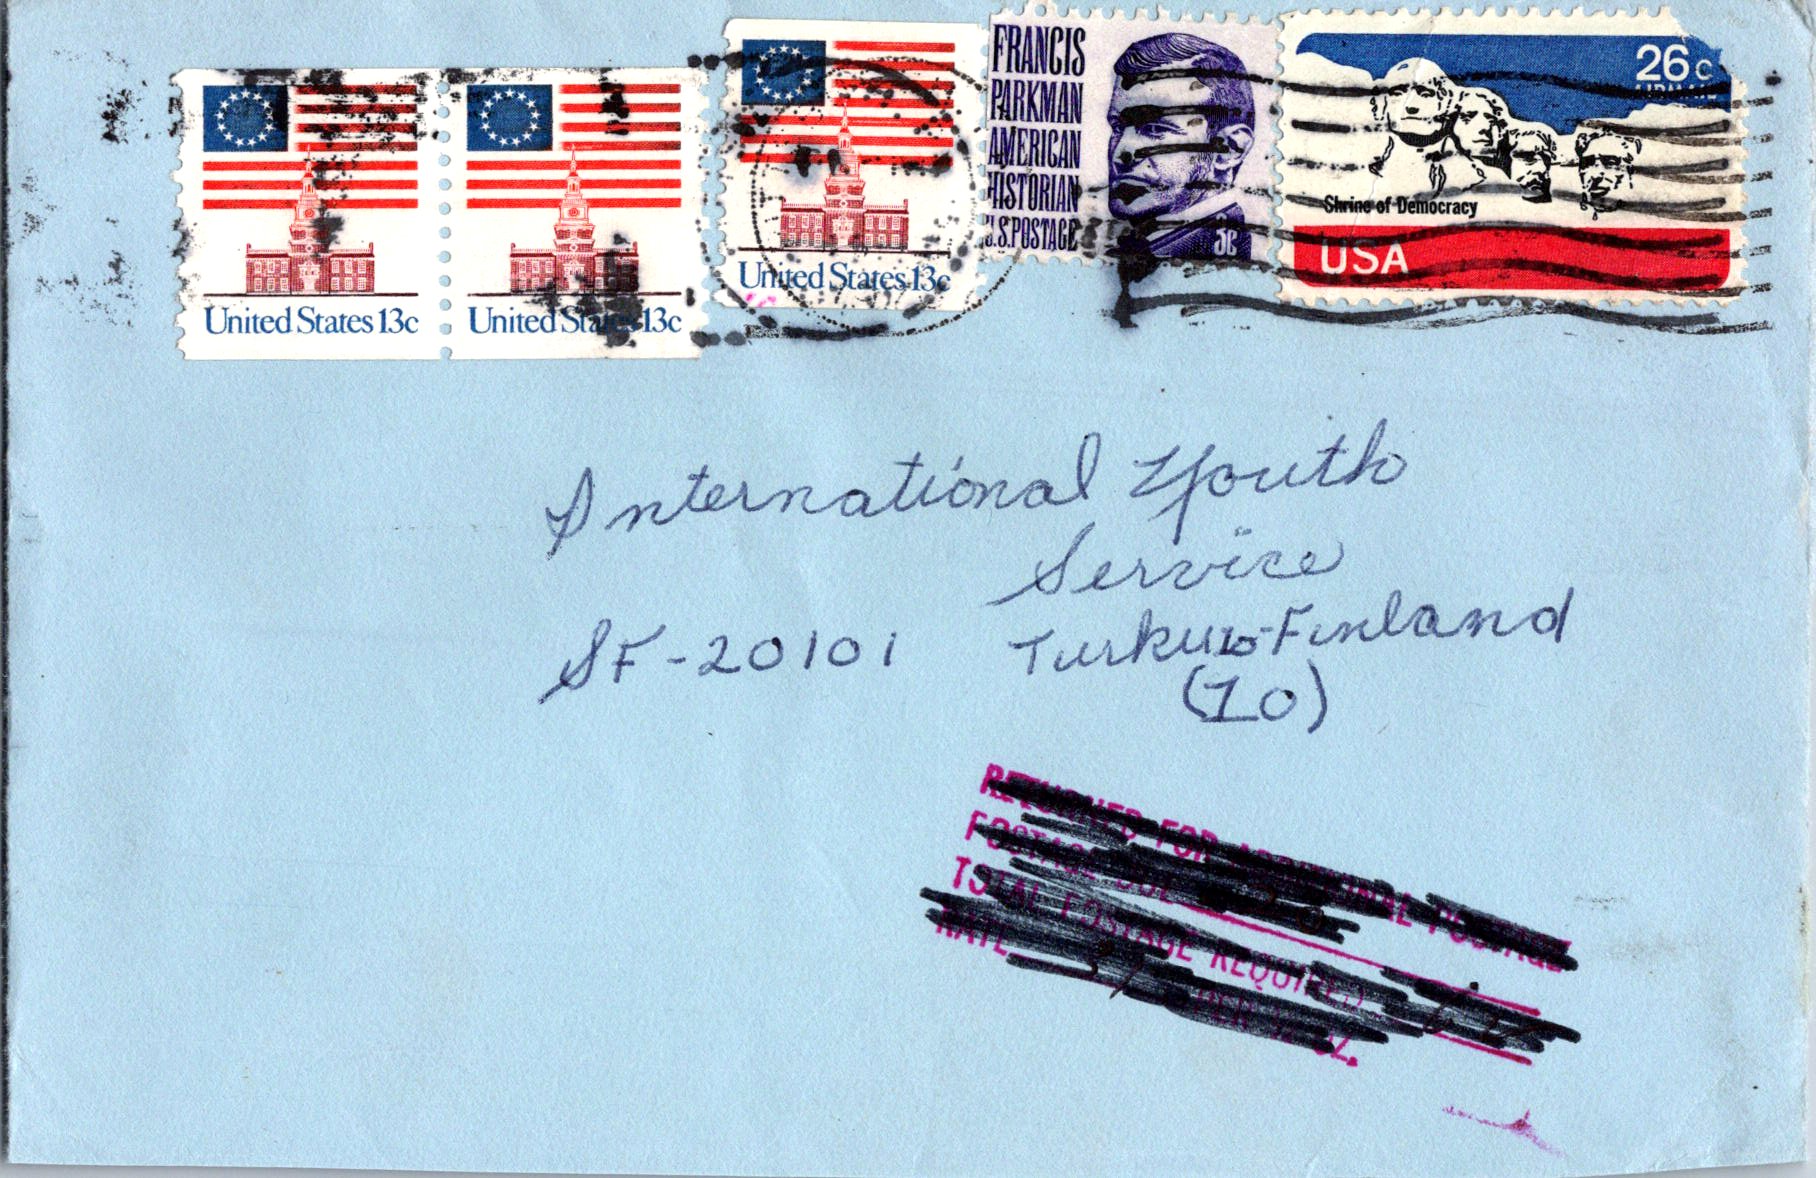 United States 13c
United States 13c
United States 13c
FRANCIS
PARKMAN
AMERICAN
HISTORIAN
U.S. POSTAGE
3c
26c
AIRMAIL
Shrine of Democracy
USA
International Youth
Service
SF-20101 Turku 10-Finland
(10)
RETURNED FOR ADDITIONAL POSTAGE
POSTAGE DUE
TOTAL POSTAGE REQUIRED
RATE 31 PER ½ OZ.